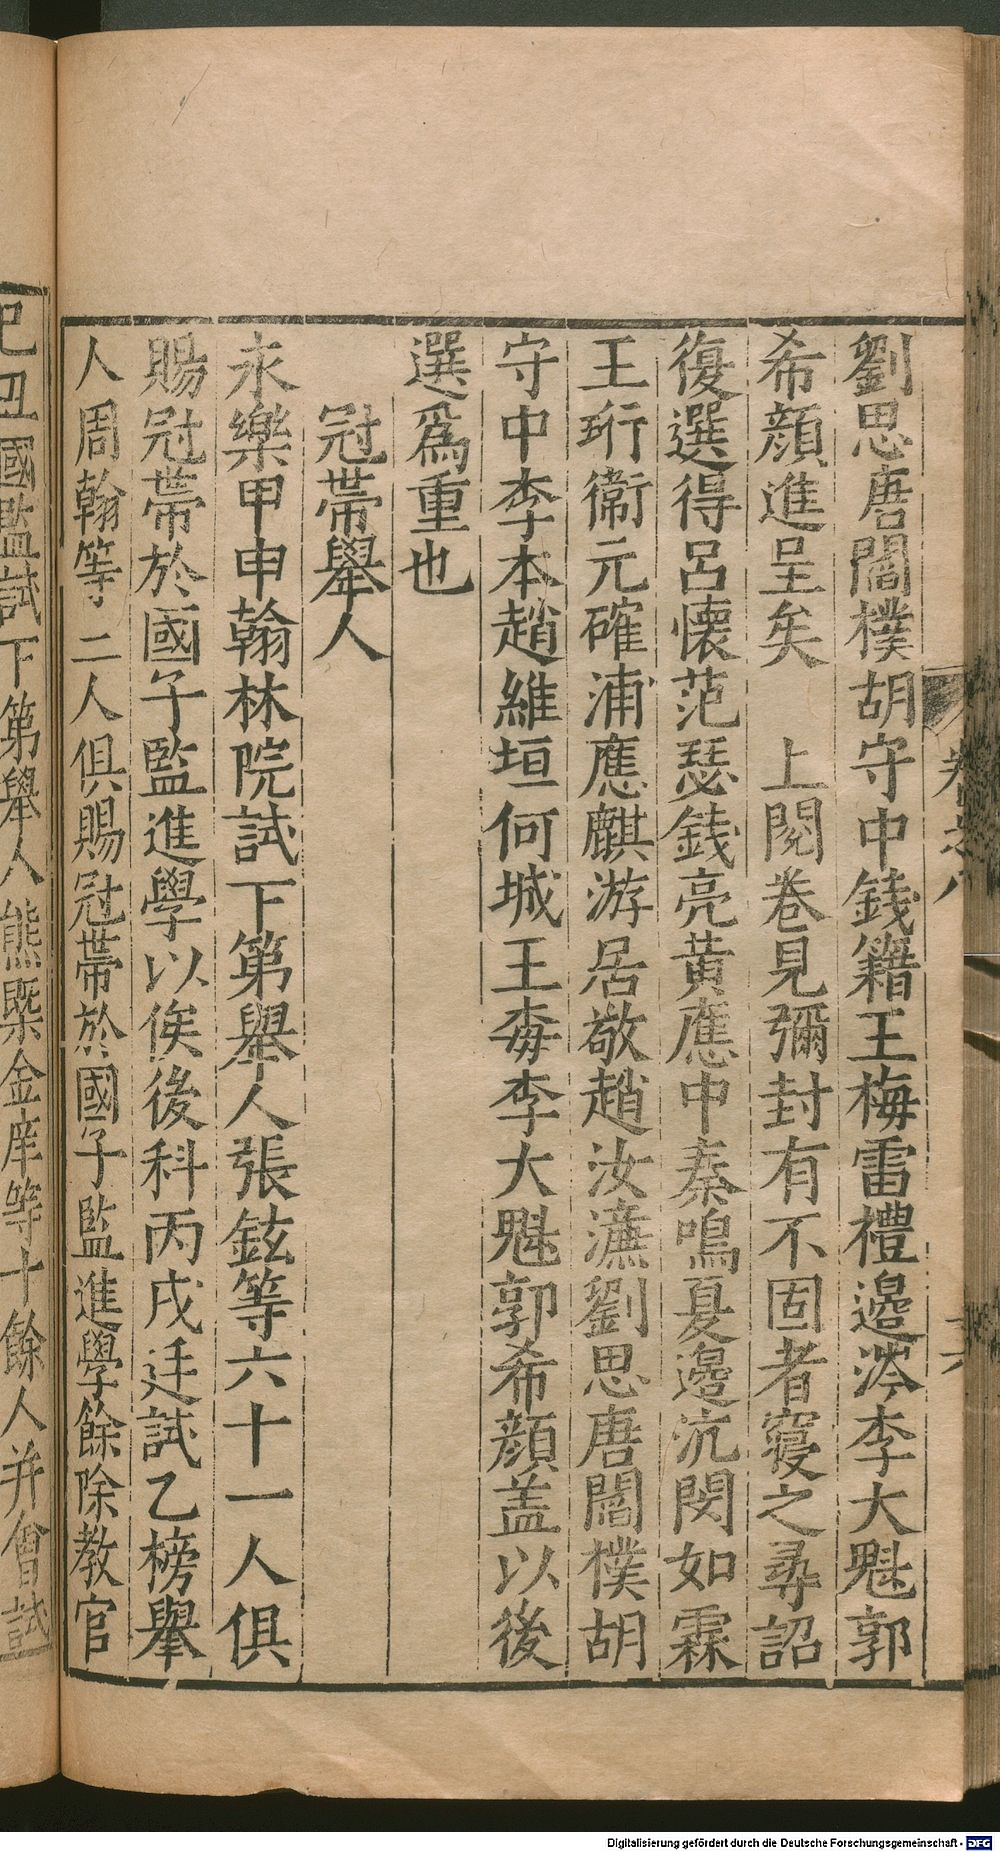 劉思唐閻樸胡守中錢籍王梅雷禮邉涔李大魁郭
希顔進呈矣　上閱卷見彌封有不固者寢之尋詔
復選得呂懷范瑟錢亮黄應中秦鳴夏邉沆閔如霖
王珩衞元確浦應麒游居敬趙汝濂劉思唐閻樸胡
守中李本趙維垣何城王梅李大魁郭希顔盖以後
選爲重也
冠帶舉人
永樂甲申翰林院試下第舉人張鉉等六十一人俱
賜冠帶於國子監進學以俟後科丙戌廷試乙榜舉
人周翰等二人俱賜冠帶於國子監進學餘除教官
己丑國監試下第舉人熊槩金庠等十餘人并會試
卷之八
Digitalisierung gefördert durch die Deutsche Forschungsgemeinschaft - DFG